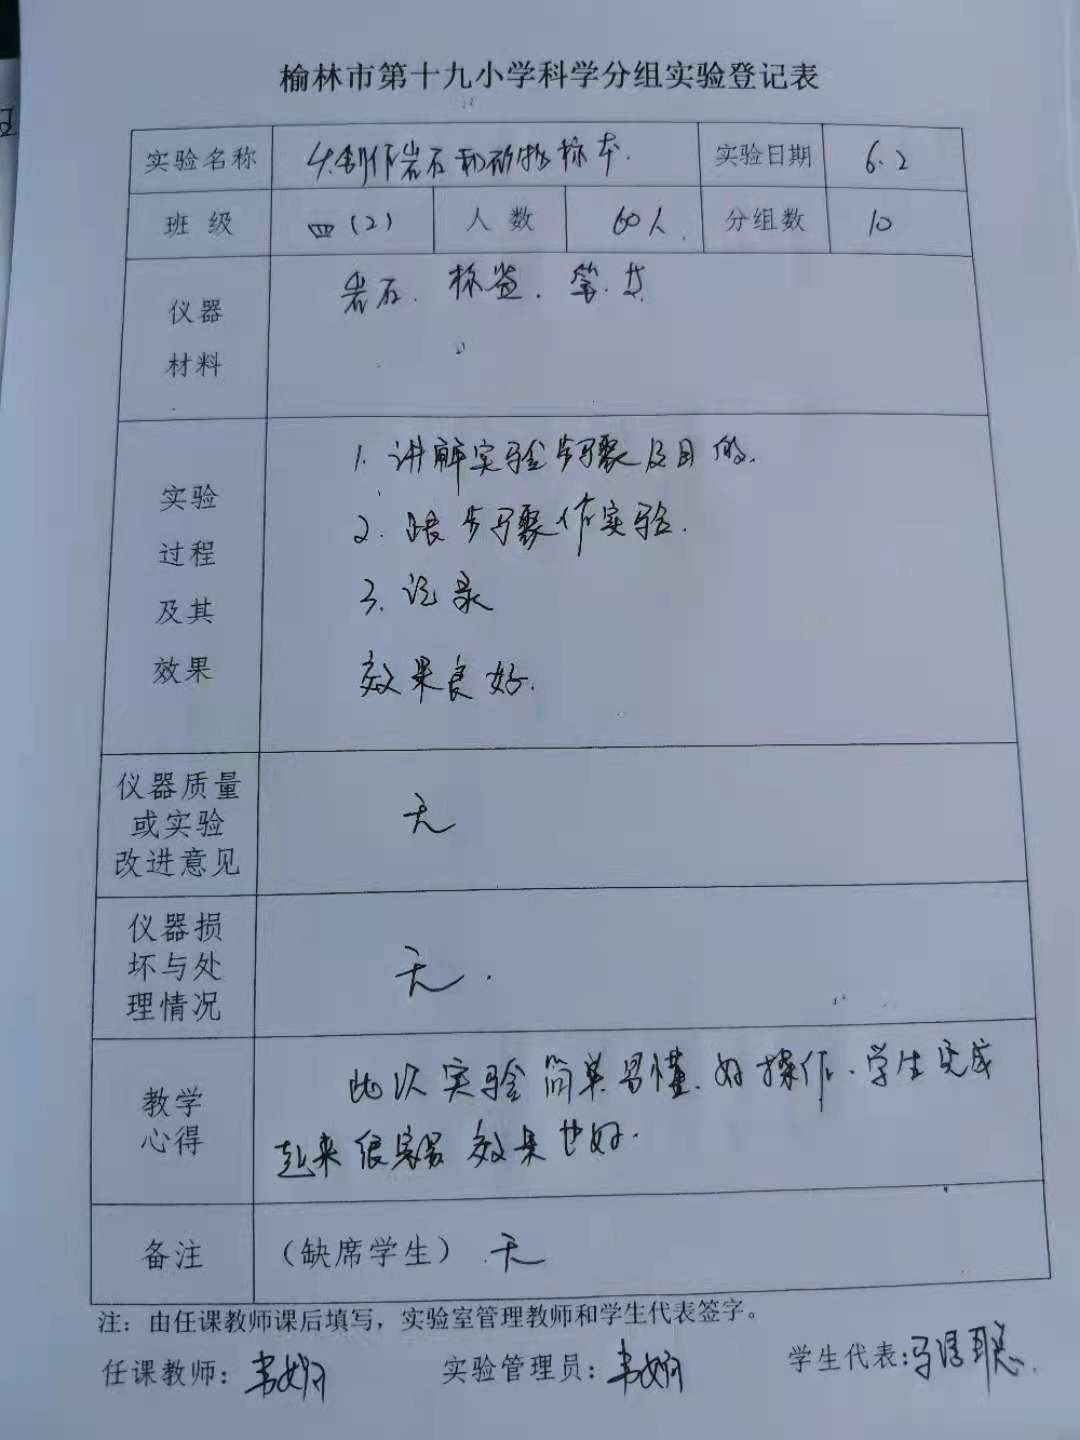 榆林市第十九小学科学分组实验登记表
实验名称 4.制作岩石和矿物标本. 实验日期 6.2
班级 四(2) 人数 60人. 分组数 10
仪器
材料
岩石. 标签.
实验
过程
及其
效果
1. 讲解实验步骤及目的.
2. 跟步骤作实验.
3. 记录
效果良好.
仪器质量
或实验
改进意见
无
仪器损
坏与处
理情况
无.
教学
心得
此次实验简单易懂.好操作.学生完成
起来很容易 效果也好.
备注 (缺席学生) 无
注: 由任课教师课后填写,实验室管理教师和学生代表签字。
任课教师: 实验管理员: 学生代表: